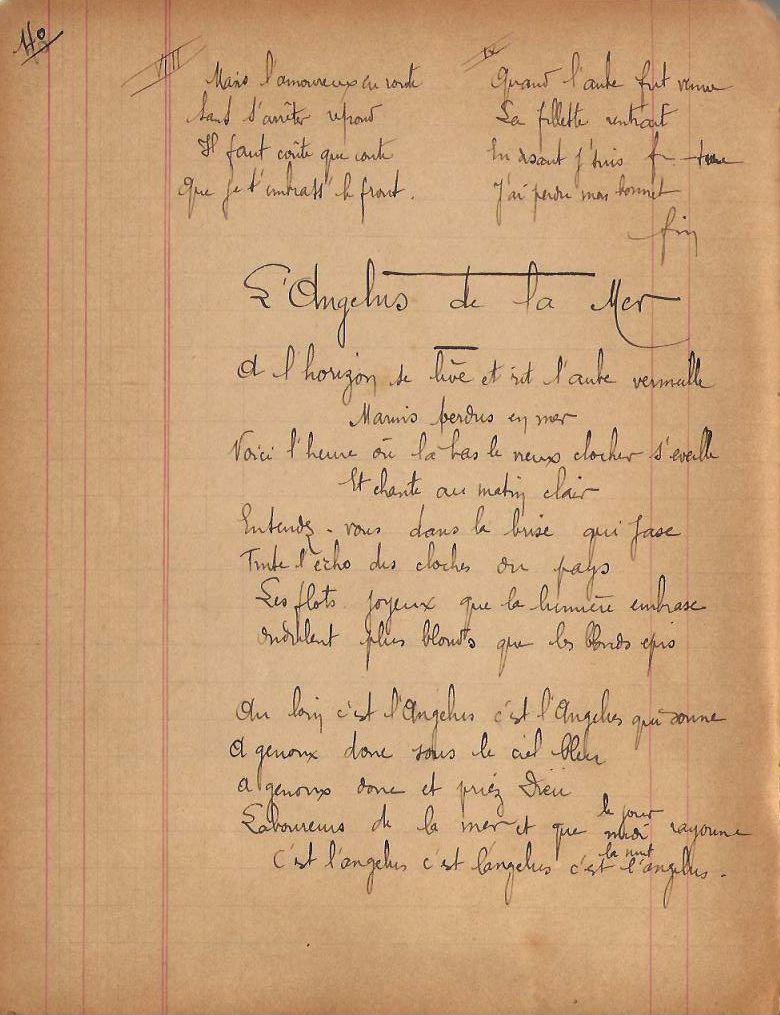 48
VIII
Mais l'amoureux en route
Sans s'arrêter repond
Il faut coûte que coute
Que je t'embrass' le front.
IX
Quand l'aube fut venue
La fillette rentrait
En disant j'suis
J'ai perdu mon bonnet
fin
L'Angelus de la Mer
A l'horizon se lève et rit l'aube vermeille
Marins perdus en mer
Voici l'heure où la bas le vieux clocher s'eveille
Et chante au matin clair
Entendez-vous dans la brise qui jase
Tinte l'écho des cloches du pays
Les flots joyeux que la lumière embrase
Ondulent plus blonds que les blonds epis
Au loin c'est l'Angelus c'est l'Angelus qui sonne
A genoux donc sous le ciel bleu
A genoux donc et priez Dieu
Laboureurs de la mer et que midi rayonne
le jour
C'est l'angelus c'est l'angelus c'est l'angelus.
la nuit